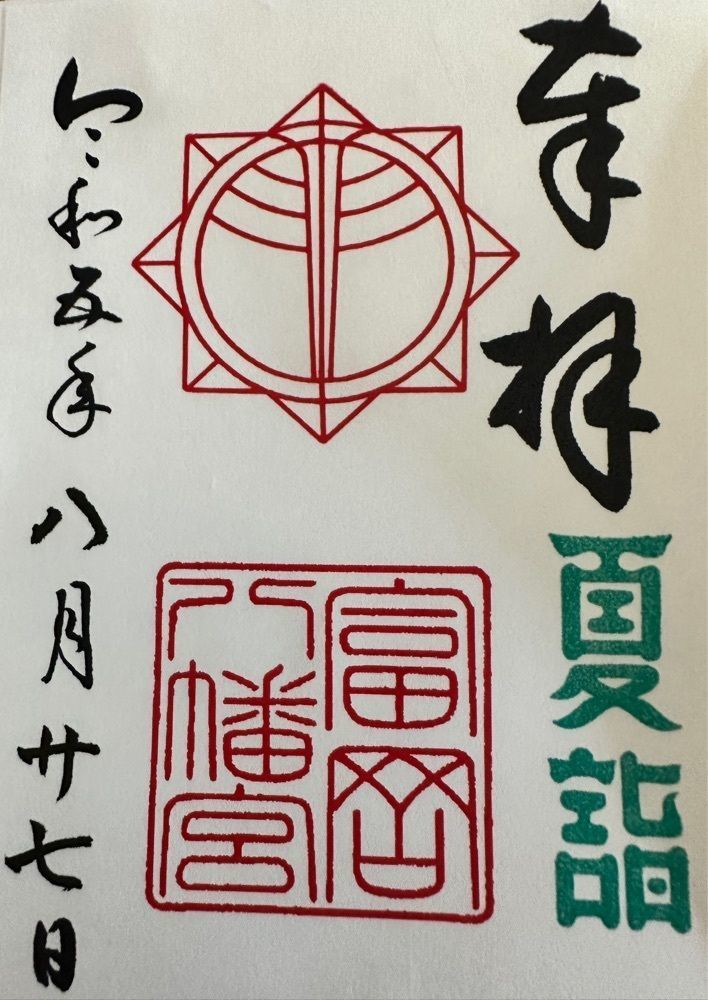 奉拝
夏詣
富岡
八幡宮
令和五年 八月廿七日